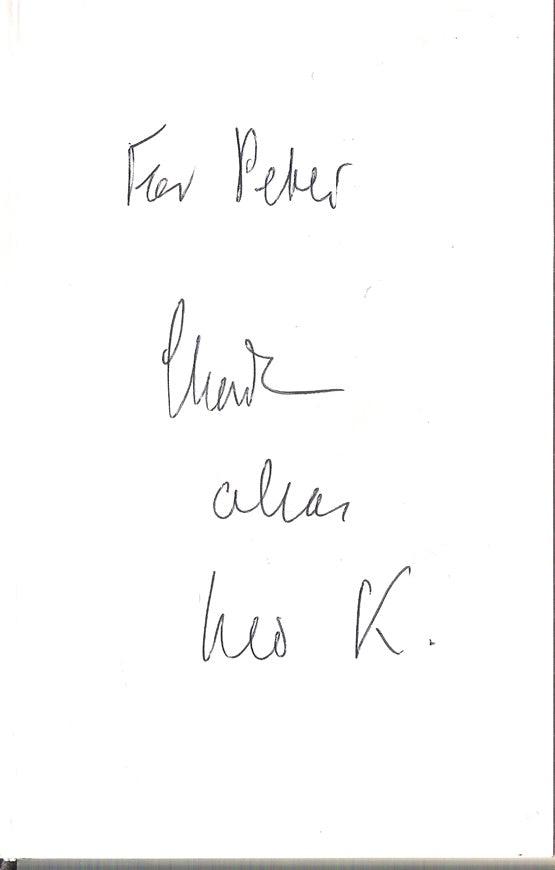 For Peter
alias
Leo K.